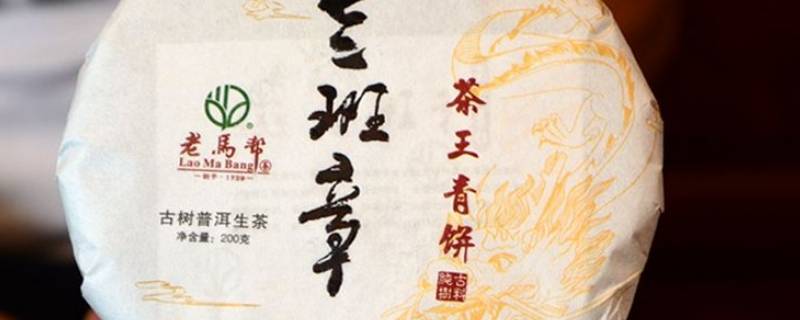 班章
茶王青饼
老馬帮
Lao Ma Bang
古树普洱生茶
净含量：200克